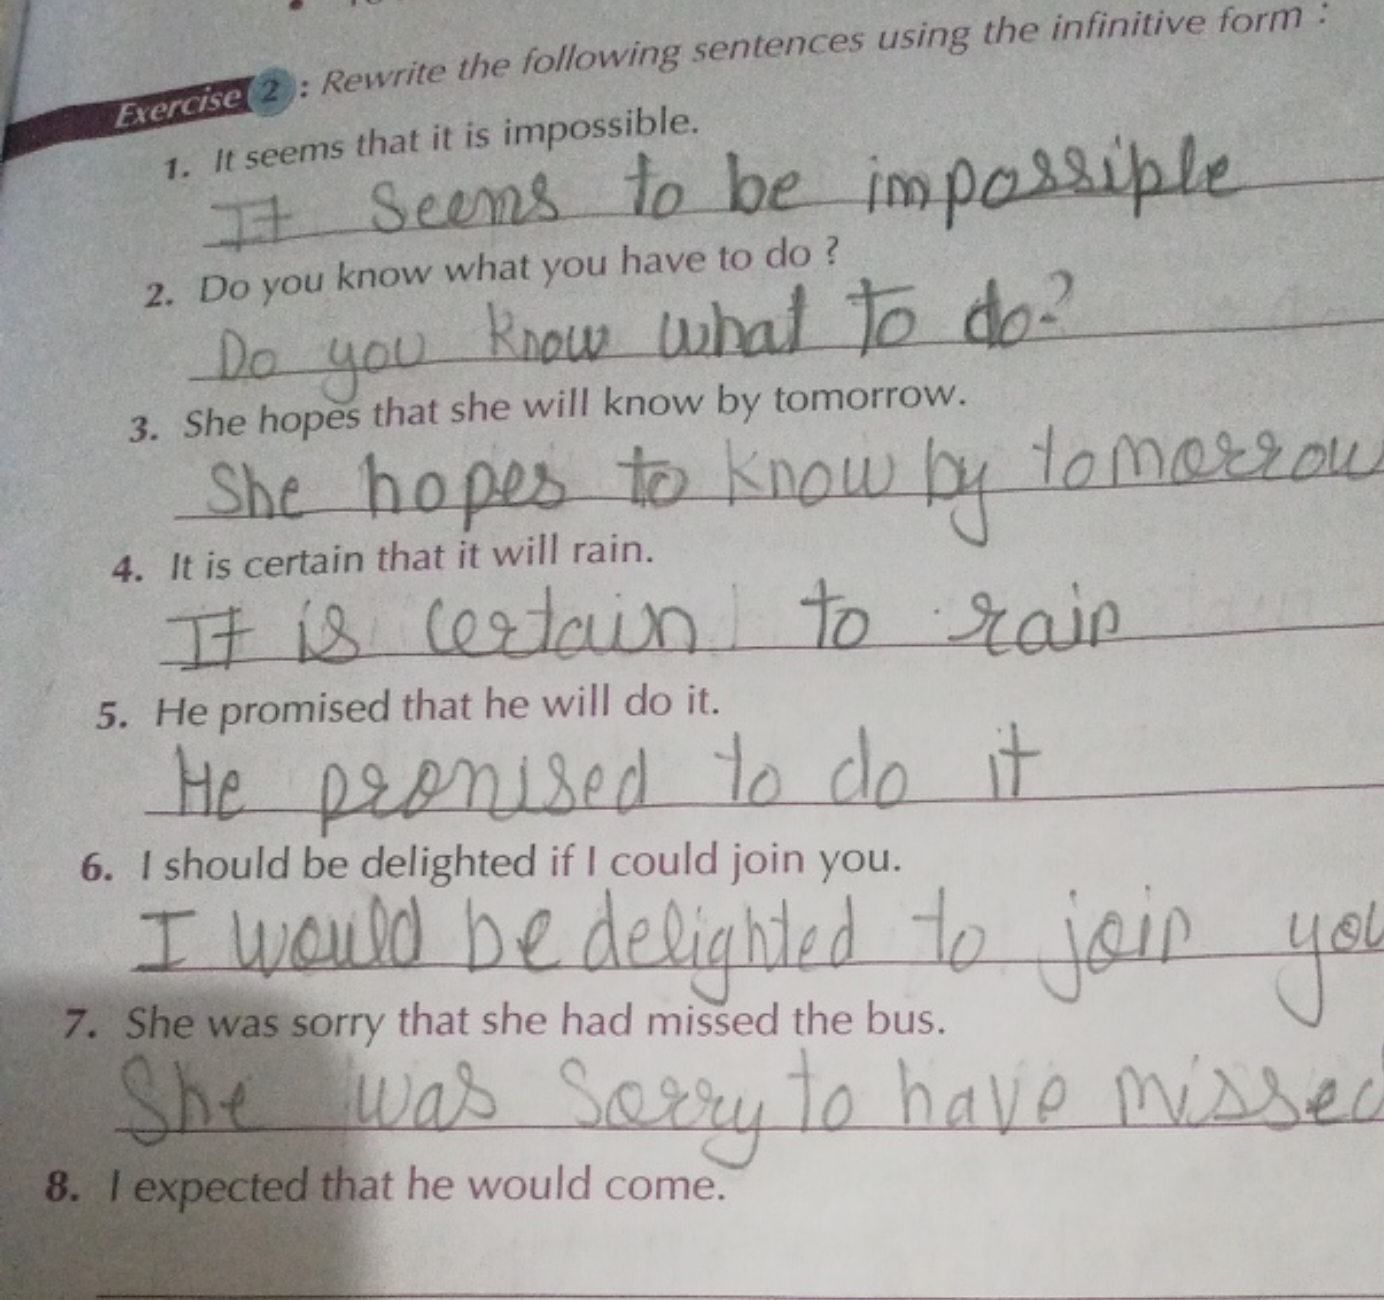 Exercise 2 : Rewrite the following sentences using the infinitive form :
1. It seems that it is impossible.
It seems to be impossible
2. Do you know what you have to do ?
Do you know what to do?
3. She hopes that she will know by tomorrow.
She hopes to know by tomorrow
4. It is certain that it will rain.
It is certain to rain
5. He promised that he will do it.
He promised to do it
6. I should be delighted if I could join you.
I would be delighted to join you
7. She was sorry that she had missed the bus.
She was sorry to have missed
8. I expected that he would come.